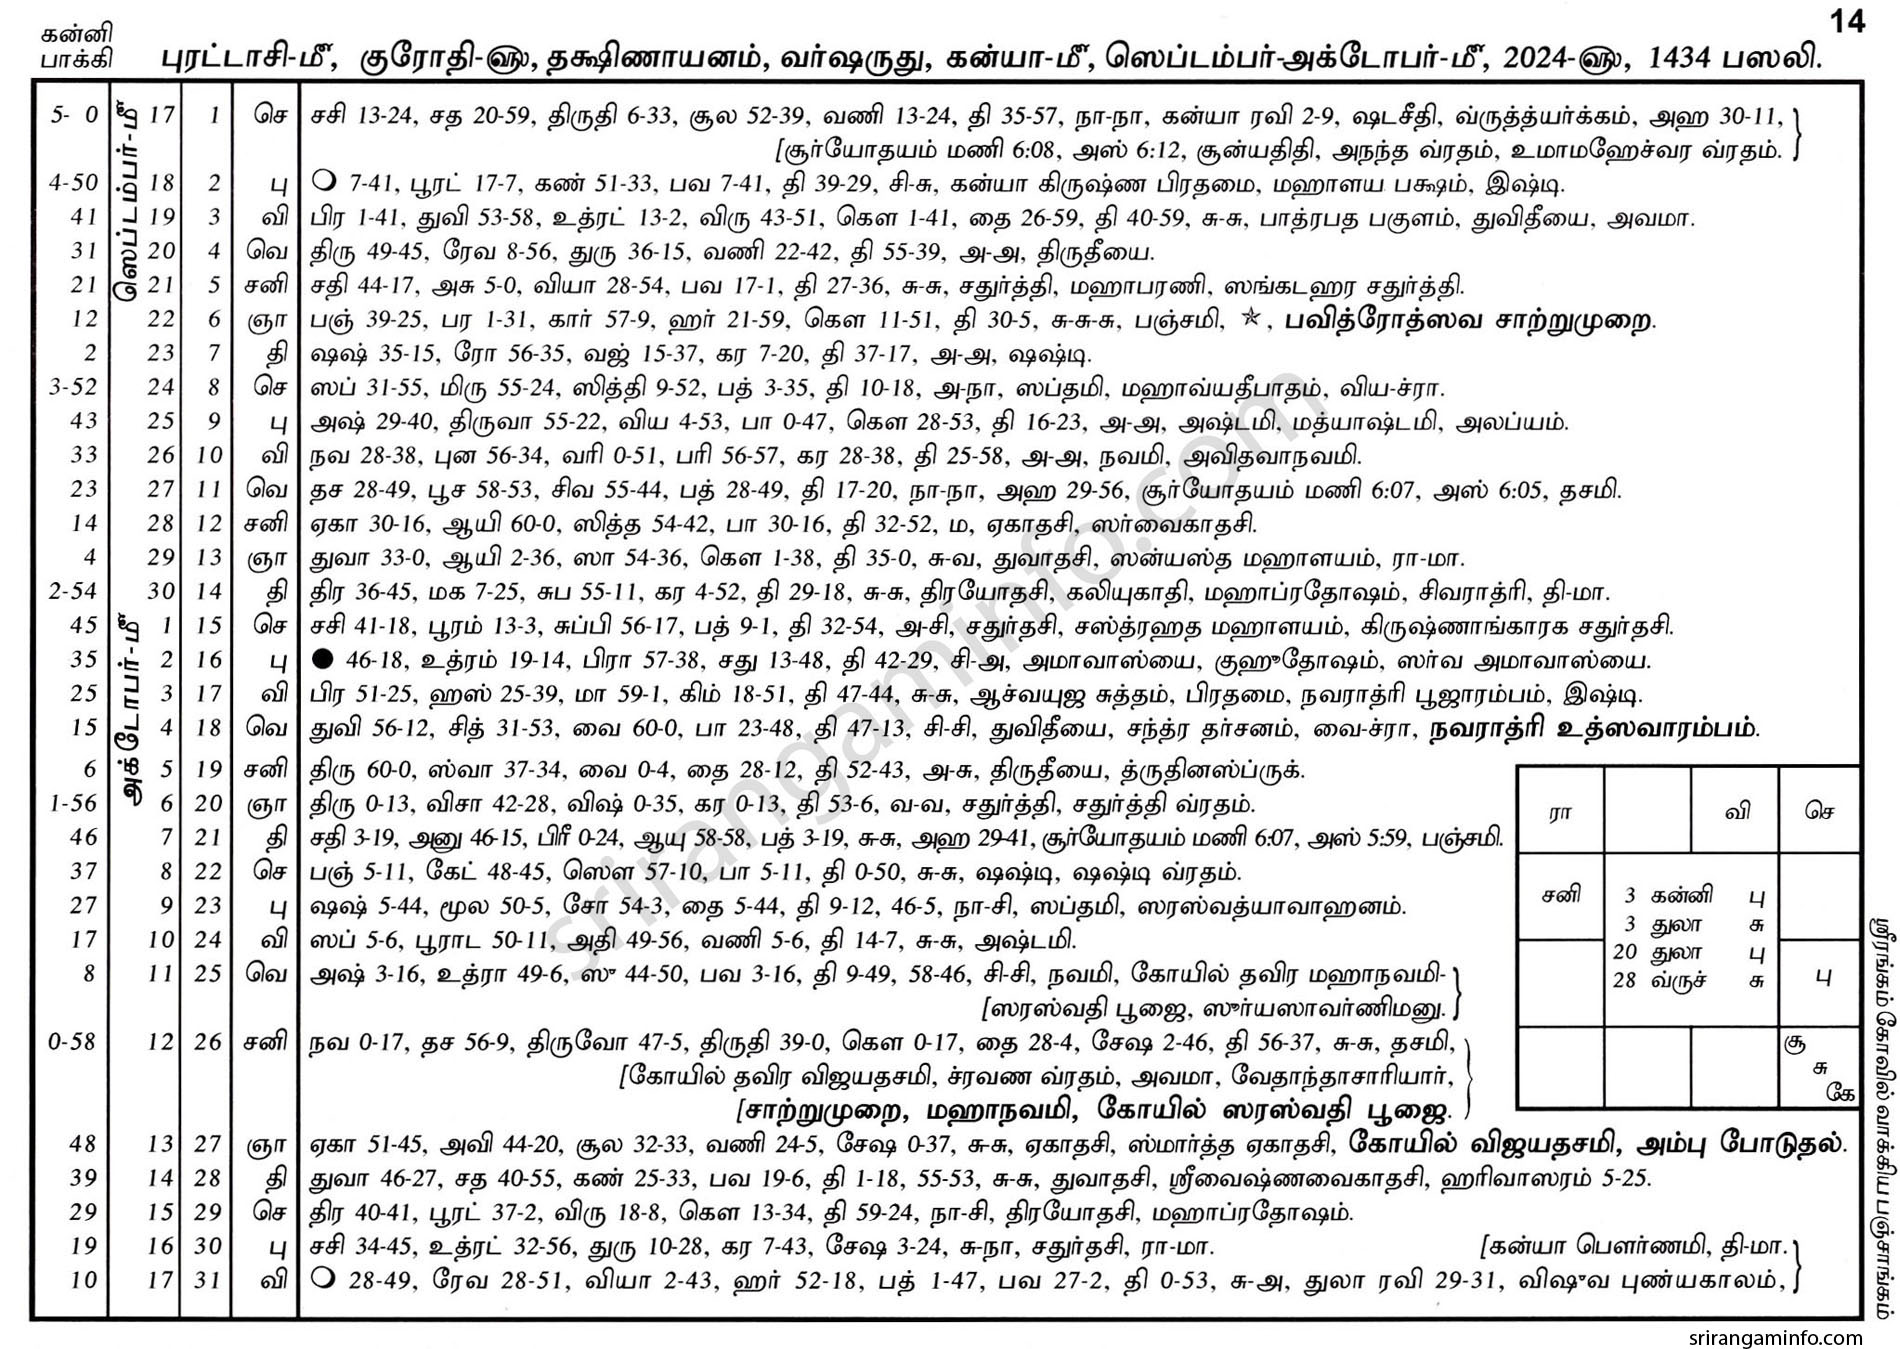 14
கன்னி
பாக்கி
புரட்டாசி-மீ, குரோதி-௵, தக்ஷிணாயனம், வர்ஷருது, கன்யா-மீ, ஸெப்டம்பர்-அக்டோபர்-மீ, 2024-௵, 1434 பஸலி.
ஸெப்டம்பர்-மீ
5- 0 17 1 செ சசி 13-24, சத 20-59, திருதி 6-33, சூல 52-39, வணி 13-24, தி 35-57, நா-நா, கன்யா ரவி 2-9, ஷடசீதி, வ்ருத்த்யர்க்கம், அஹ 30-11,
[சூர்யோதயம் மணி 6:08, அஸ் 6:12, சூன்யதிதி, அநந்த வ்ரதம், உமாமஹேச்வர வ்ரதம்.
4-50 18 2 பு 7-41, பூரட் 17-7, கண் 51-33, பவ 7-41, தி 39-29, சி-சு, கன்யா கிருஷ்ண பிரதமை, மஹாளய பக்ஷம், இஷ்டி.
41 19 3 வி பிர 1-41, துவி 53-58, உத்ரட் 13-2, விரு 43-51, கௌ 1-41, தை 26-59, தி 40-59, சு-சு, பாத்ரபத பகுளம், துவிதீயை, அவமா.
31 20 4 வெ திரு 49-45, ரேவ 8-56, துரு 36-15, வணி 22-42, தி 55-39, அ-அ, திருதீயை.
21 21 5 சனி சதி 44-17, அசு 5-0, வியா 28-54, பவ 17-1, தி 27-36, சு-சு, சதுர்த்தி, மஹாபரணி, ஸங்கடஹர சதுர்த்தி.
12 22 6 ஞா பஞ் 39-25, பர 1-31, கார் 57-9, ஹர் 21-59, கௌ 11-51, தி 30-5, சு-சு-சு, பஞ்சமி, ☆, பவித்ரோத்ஸவ சாற்றுமுறை.
2 23 7 தி ஷஷ் 35-15, ரோ 56-35, வஜ் 15-37, கர 7-20, தி 37-17, அ-அ, ஷஷ்டி.
3-52 24 8 செ ஸப் 31-55, மிரு 55-24, ஸித்தி 9-52, பத் 3-35, தி 10-18, அ-நா, ஸப்தமி, மஹாவ்யதீபாதம், விய-ச்ரா.
43 25 9 பு அஷ் 29-40, திருவா 55-22, விய 4-53, பா 0-47, கௌ 28-53, தி 16-23, அ-அ, அஷ்டமி, மத்யாஷ்டமி, அலப்யம்.
33 26 10 வி நவ 28-38, புன 56-34, வரி 0-51, பரி 56-57, கர 28-38, தி 25-58, அ-அ, நவமி, அவிதவாநவமி.
23 27 11 வெ தச 28-49, பூச 58-53, சிவ 55-44, பத் 28-49, தி 17-20, நா-நா, அஹ 29-56, சூர்யோதயம் மணி 6:07, அஸ் 6:05, தசமி.
14 28 12 சனி ஏகா 30-16, ஆயி 60-0, ஸித்த 54-42, பா 30-16, தி 32-52, ம, ஏகாதசி, ஸர்வைகாதசி.
4 29 13 ஞா துவா 33-0, ஆயி 2-36, ஸா 54-36, கௌ 1-38, தி 35-0, சு-வ, துவாதசி, ஸன்யஸ்த மஹாளயம், ரா-மா.
2-54 30 14 தி திர 36-45, மக 7-25, சுப 55-11, கர 4-52, தி 29-18, சு-சு, திரயோதசி, கலியுகாதி, மஹாப்ரதோஷம், சிவராத்ரி, தி-மா.
அக்டோபர்-மீ
45 1 15 செ சசி 41-18, பூரம் 13-3, சுப்பி 56-17, பத் 9-1, தி 32-54, அ-சி, சதுர்தசி, சஸ்த்ரஹத மஹாளயம், கிருஷ்ணாங்காரக சதுர்தசி.
35 2 16 பு 46-18, உத்ரம் 19-14, பிரா 57-38, சது 13-48, தி 42-29, சி-அ, அமாவாஸ்யை, குஹுதோஷம், ஸர்வ அமாவாஸ்யை.
25 3 17 வி பிர 51-25, ஹஸ் 25-39, மா 59-1, கிம் 18-51, தி 47-44, சு-சு, ஆச்வயுஜ சுத்தம், பிரதமை, நவராத்ரி பூஜாரம்பம், இஷ்டி.
15 4 18 வெ துவி 56-12, சித் 31-53, வை 60-0, பா 23-48, தி 47-13, சி-சி, துவிதீயை, சந்த்ர தர்சனம், வை-ச்ரா, நவராத்ரி உத்ஸவாரம்பம்.
6 5 19 சனி திரு 60-0, ஸ்வா 37-34, வை 0-4, தை 28-12, தி 52-43, அ-சு, திருதீயை, த்ருதினஸ்ப்ருக்.
1-56 6 20 ஞா திரு 0-13, விசா 42-28, விஷ் 0-35, கர 0-13, தி 53-6, வ-வ, சதுர்த்தி, சதுர்த்தி வ்ரதம்.
46 7 21 தி சதி 3-19, அனு 46-15, பிரீ 0-24, ஆயு 58-58, பத் 3-19, சு-சு, அஹ 29-41, சூர்யோதயம் மணி 6:07, அஸ் 5:59, பஞ்சமி.
37 8 22 செ பஞ் 5-11, கேட் 48-45, ஸௌ 57-10, பா 5-11, தி 0-50, சு-சு, ஷஷ்டி, ஷஷ்டி வ்ரதம்.
27 9 23 பு ஷஷ் 5-44, மூல 50-5, சோ 54-3, தை 5-44, தி 9-12, 46-5, நா-சி, ஸப்தமி, ஸரஸ்வத்யாவாஹனம்.
17 10 24 வி ஸப் 5-6, பூராட 50-11, அதி 49-56, வணி 5-6, தி 14-7, சு-சு, அஷ்டமி.
8 11 25 வெ அஷ் 3-16, உத்ரா 49-6, ஸு 44-50, பவ 3-16, தி 9-49, 58-46, சி-சி, நவமி, கோயில் தவிர மஹாநவமி-
[ஸரஸ்வதி பூஜை, ஸுர்யஸாவர்ணிமனு.
0-58 12 26 சனி நவ 0-17, தச 56-9, திருவோ 47-5, திருதி 39-0, கௌ 0-17, தை 28-4, சேஷ 2-46, தி 56-37, சு-சு, தசமி,
[கோயில் தவிர விஜயதசமி, ச்ரவண வ்ரதம், அவமா, வேதாந்தாசாரியார்,
[சாற்றுமுறை, மஹாநவமி, கோயில் ஸரஸ்வதி பூஜை.
ரா வி செ
சனி 3 கன்னி பு
3 துலா சு
20 துலா பு
28 வ்ருச் சு பு
சூ
சு
கே
48 13 27 ஞா ஏகா 51-45, அவி 44-20, சூல 32-33, வணி 24-5, சேஷ 0-37, சு-சு, ஏகாதசி, ஸ்மார்த்த ஏகாதசி, கோயில் விஜயதசமி, அம்பு போடுதல்.
39 14 28 தி துவா 46-27, சத 40-55, கண் 25-33, பவ 19-6, தி 1-18, 55-53, சு-சு, துவாதசி, ஸ்ரீவைஷ்ணவைகாதசி, ஹரிவாஸரம் 5-25.
29 15 29 செ திர 40-41, பூரட் 37-2, விரு 18-8, கௌ 13-34, தி 59-24, நா-சி, திரயோதசி, மஹாப்ரதோஷம்.
19 16 30 பு சசி 34-45, உத்ரட் 32-56, துரு 10-28, கர 7-43, சேஷ 3-24, சு-நா, சதுர்தசி, ரா-மா. [கன்யா பௌர்ணமி, தி-மா.
10 17 31 வி 28-49, ரேவ 28-51, வியா 2-43, ஹர் 52-18, பத் 1-47, பவ 27-2, தி 0-53, சு-அ, துலா ரவி 29-31, விஷுவ புண்யகாலம்,
ஸ்ரீரங்கம் கோவில் வாக்கிய பஞ்சாங்கம்
srirangaminfo.com
srirangaminfo.com